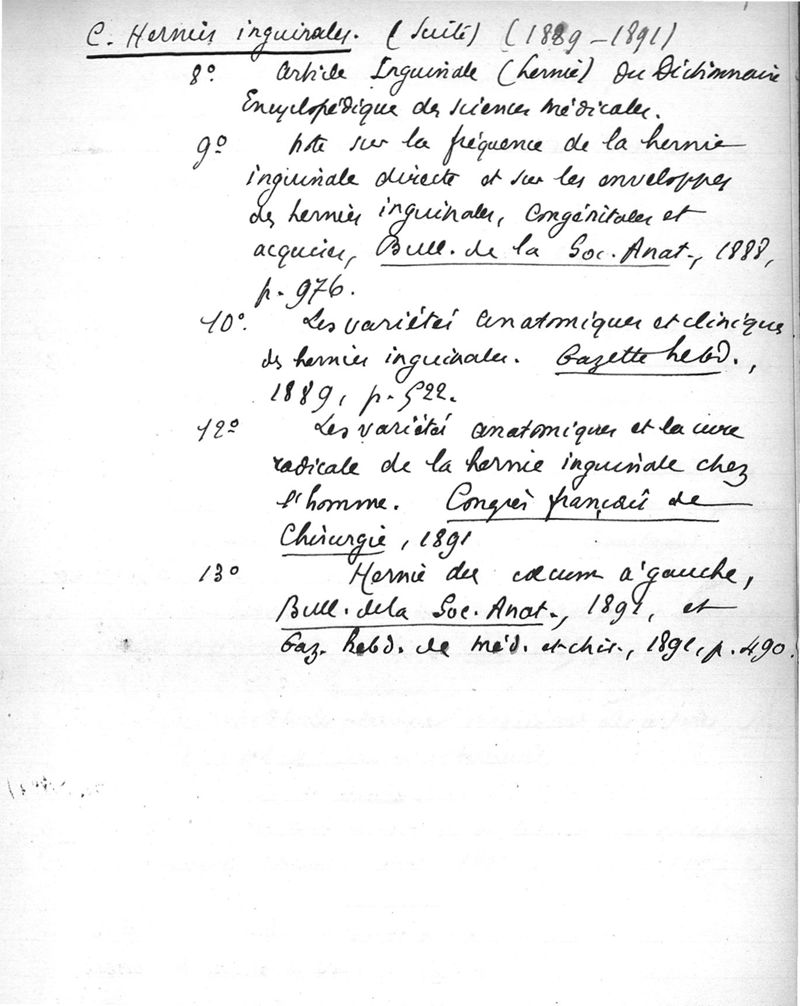 C. Hernies inguinales. (Suite) (1889-1891)
8º article Inguinale (hernie) du Dictionnaire
Encyclopédique des sciences médicales.
9º Note sur la fréquence de la hernie
inguinale directe et sur les enveloppes
des hernies inguinales, congénitales et
acquises, Bull. de la Soc. Anat., 1888,
p. 976.
10º. Les variétés anatomiques et cliniques
des hernies inguinales. Gazette hebd.,
1889, p. 522.
12º Les variétés anatomiques et la cure
radicale de la hernie inguinale chez
l'homme. Congrès français de
Chirurgie, 1891
13º Hernie du cæcum à gauche,
Bull. de la Soc. Anat., 1891, et
Gaz. hebd. de méd. et chir., 1891, p. 490.